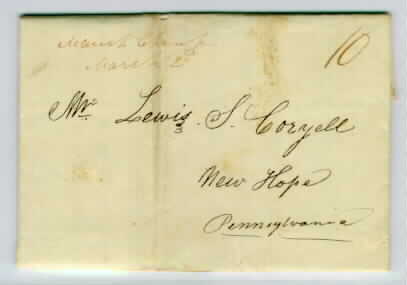 Mauch Chunk
10
March 29
Mr. Lewis S. Coryell
New Hope
Pennsylvania